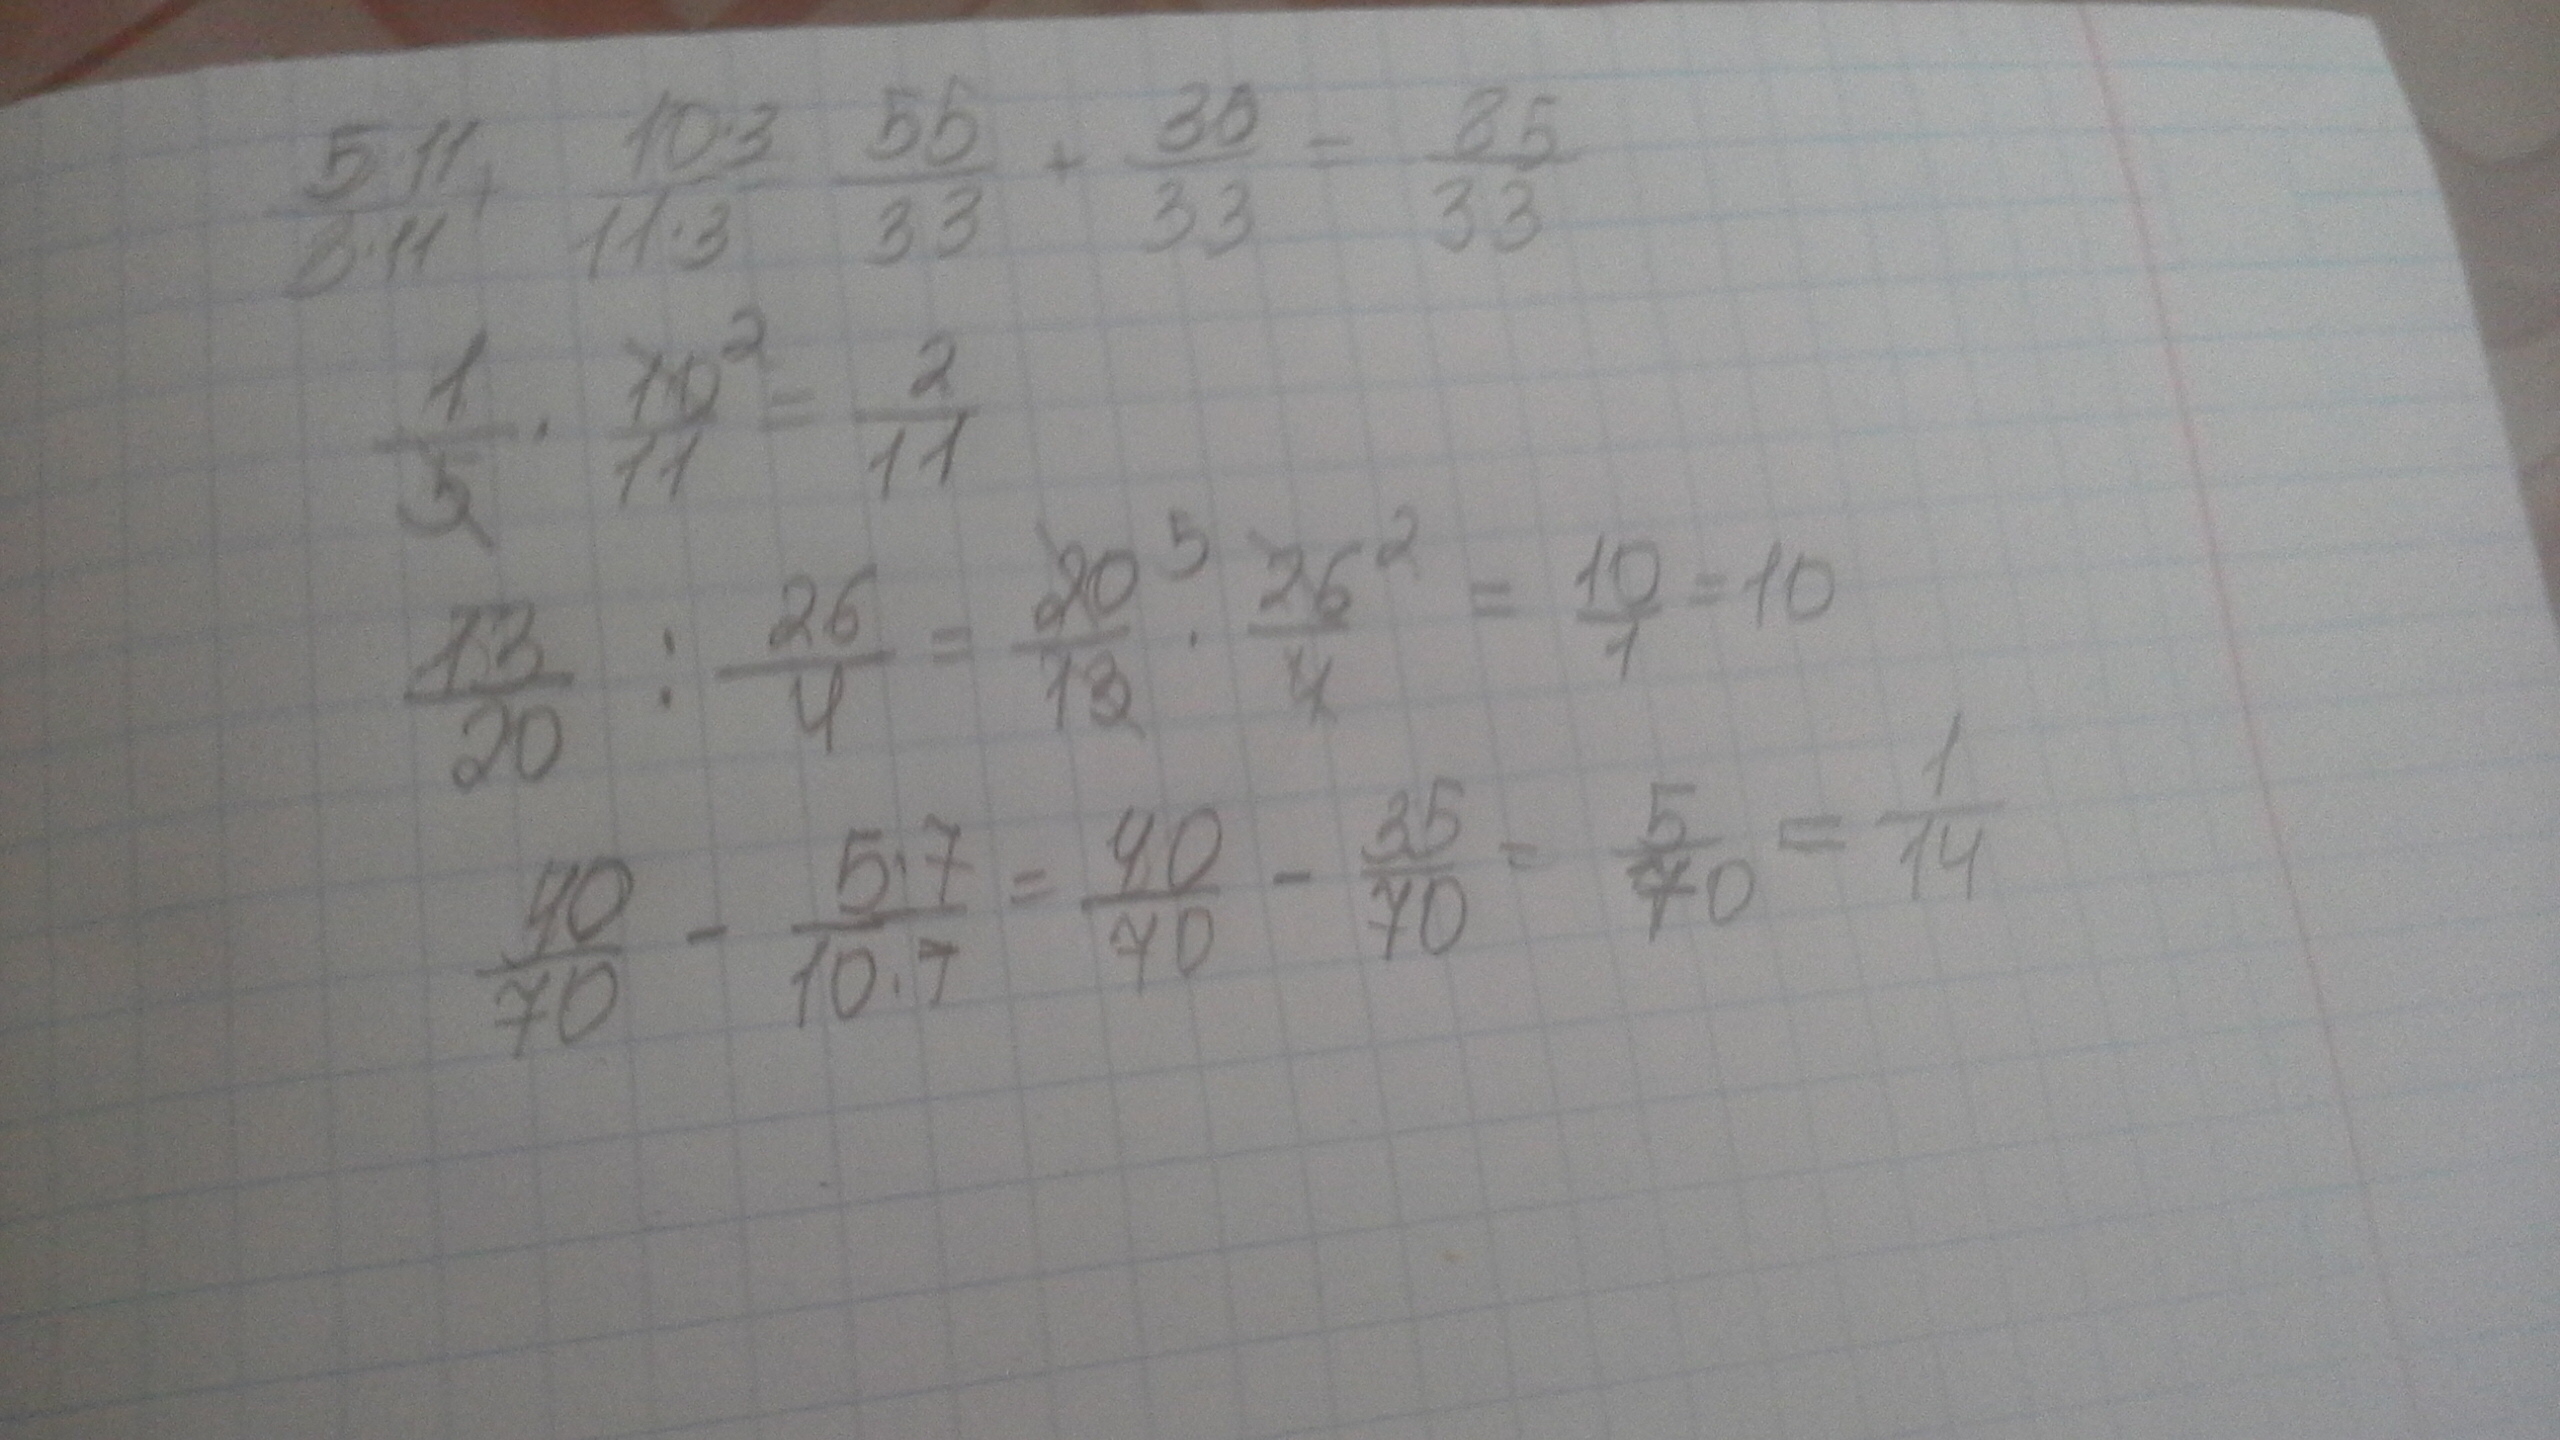 5·11/3·11 + 10·3/11·3 55/33 + 30/33 = 85/33
1/5 · 10²/11 = 2/11
13/20 : 26/4 = 20⁵/13 · 26²/4 = 10/1 = 10
40/70 - 5·7/10·7 = 40/70 - 35/70 = 5/70 = 1/14